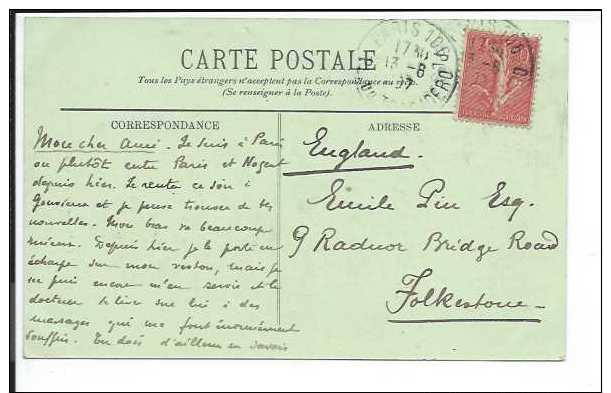 CARTE POSTALE
Tous les Pays étrangers n'acceptent pas la Correspondance au
(Se renseigner à la Poste).
PARIS 106
17
13 -8
CORRESPONDANCE
Mon cher Ami. Je suis à Paris
ou plutôt entre Paris et Nogent
depuis hier. Je rentre ce soir à
et je pense trouver de tes
nouvelles. Mon bras va beaucoup
mieux. Depuis hier je le porte en
écharpe sur mon veston, mais je
ne puis encore m'en servir et le
docteur se livre sur lui à des
massages qui me font énormément
souffrir. Tu dois d'ailleurs en savoir
ADRESSE
England.
Emile Pin Esq.
9 Radnor Bridge Road
Folkestone